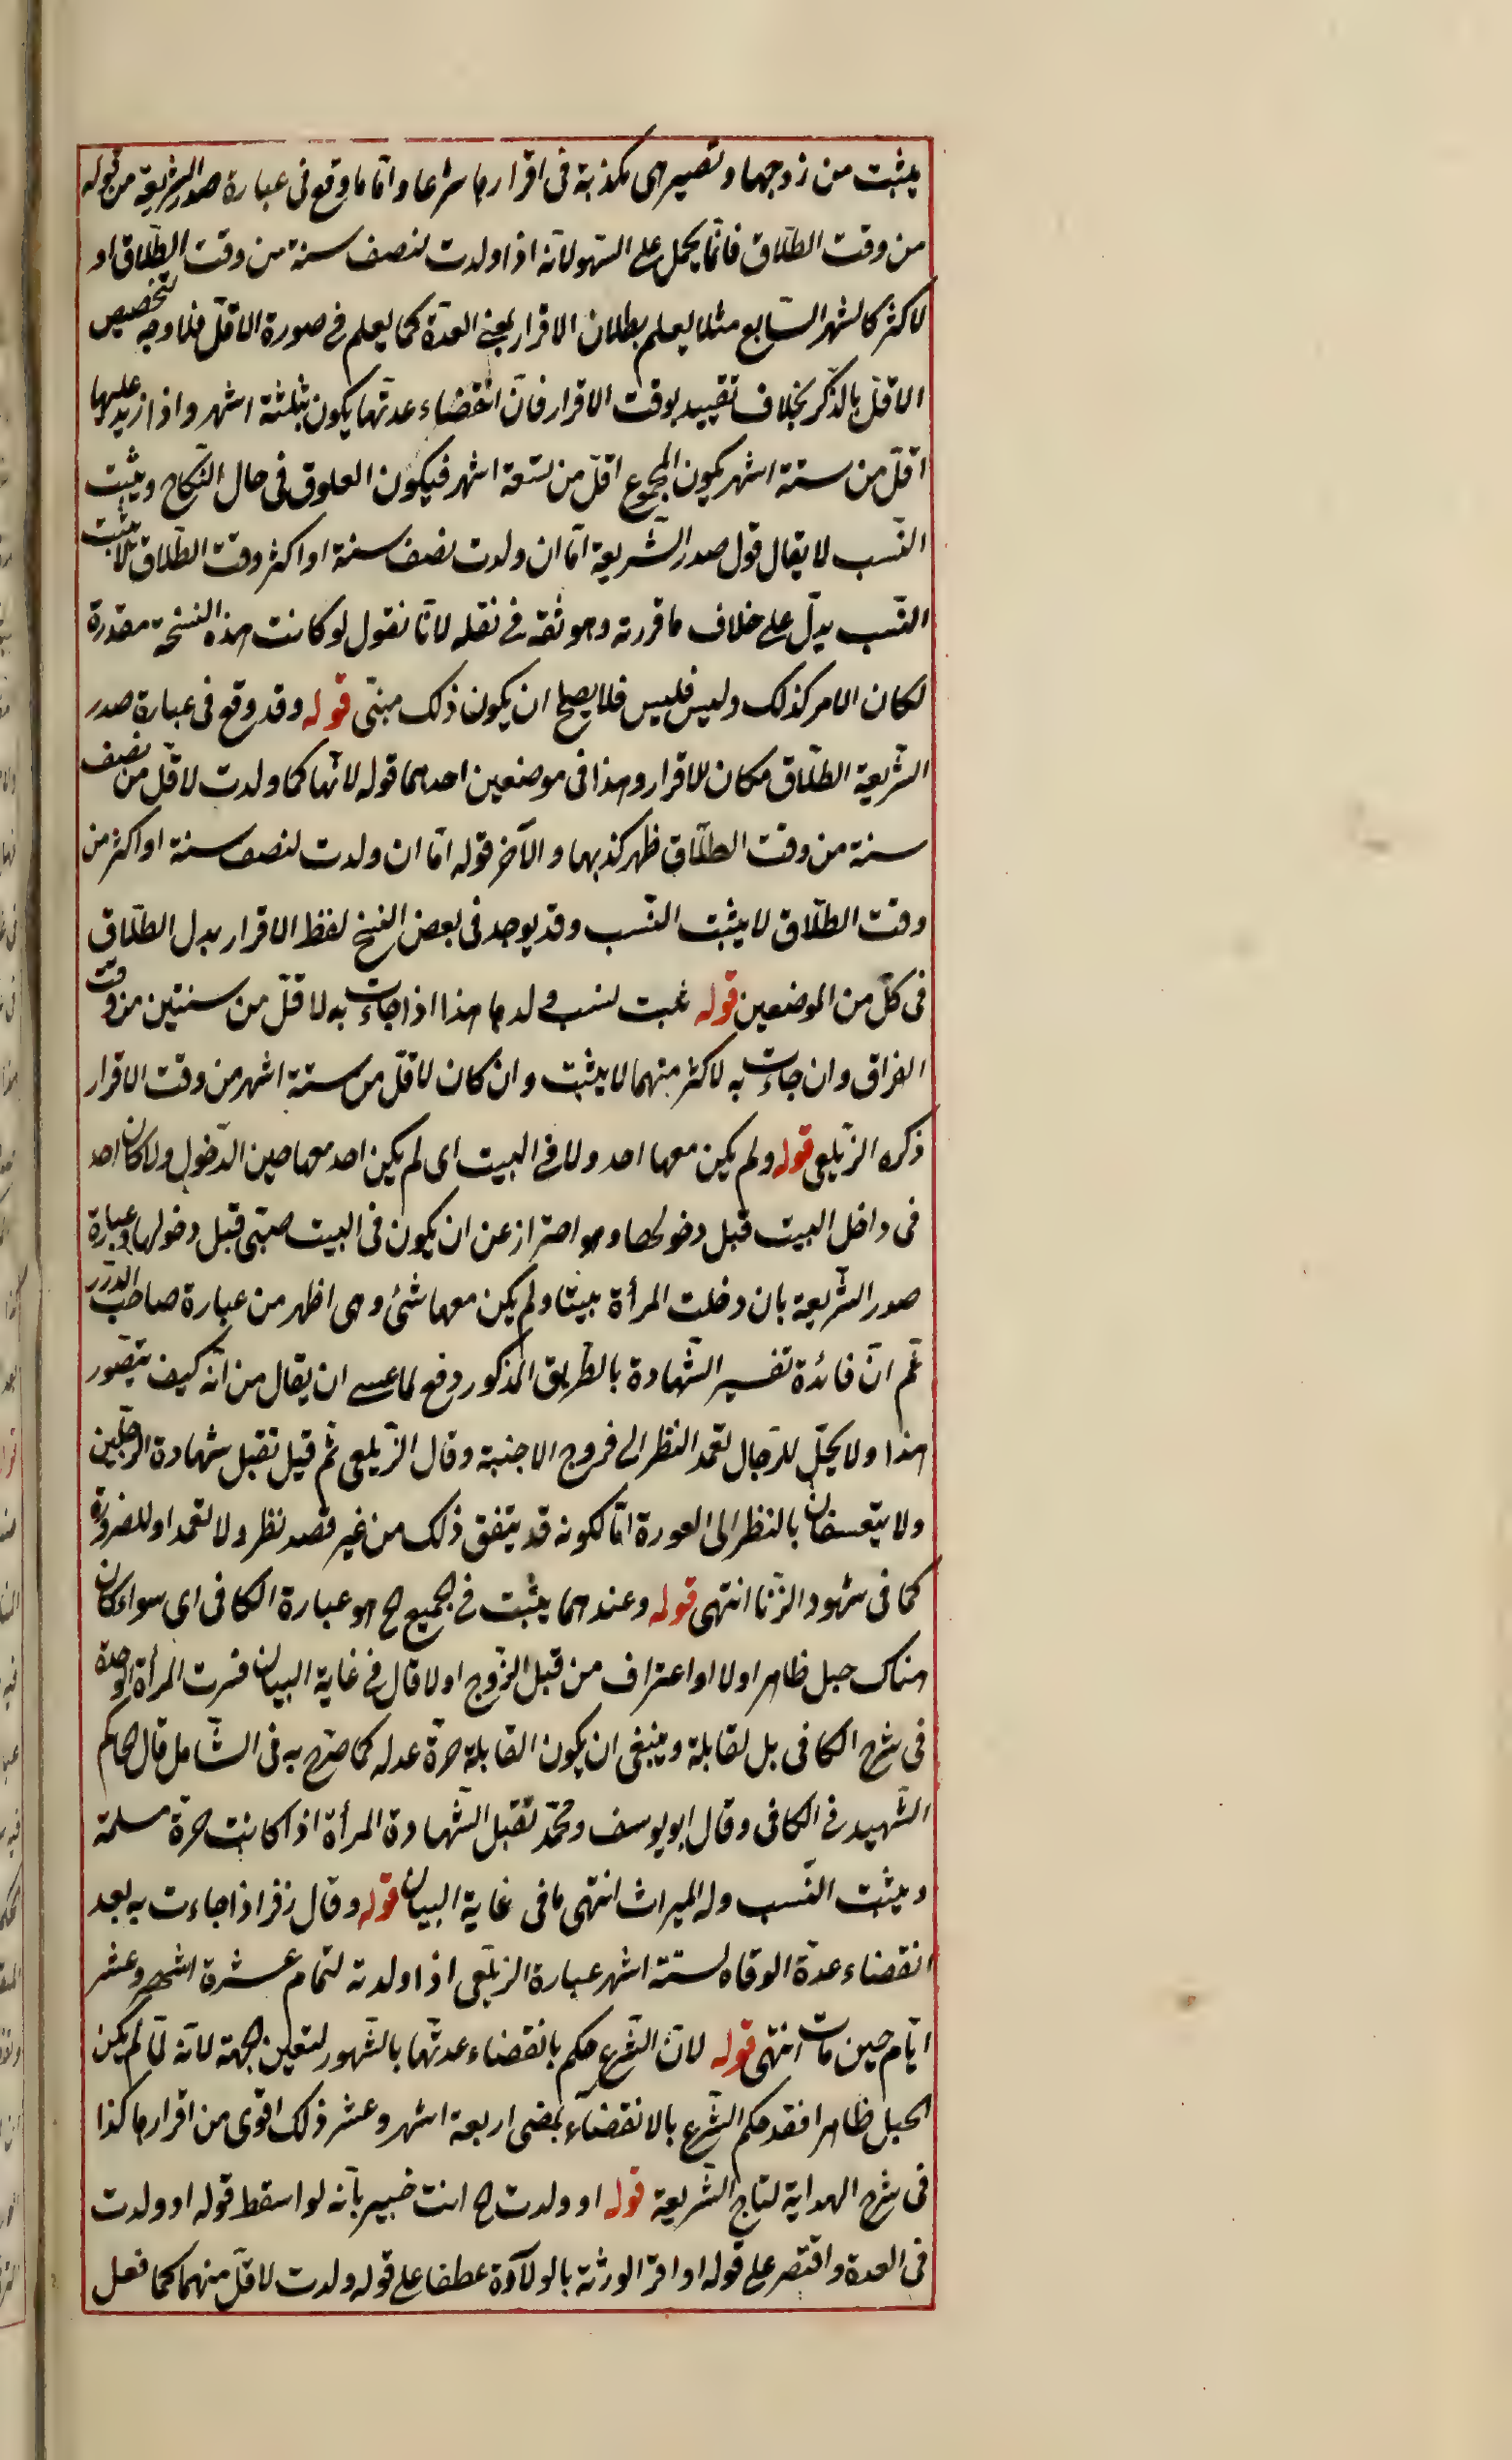 يثبت من زوجها وتصير هى مكذبة فى اقرارها شرعا واما ما وقع فى عبارة صدر الشريعة من قوله
من وقت الطلاق فانما يحمل على السهو لانه اذا ولدت لنصف سنة من وقت الطلاق او
لاكثر كالشهر السابع مثلا يعلم بطلان الاقرار بمضى العدة كما يعلم فى صورة الاقل فلا وجه لتخصيص
الاقل بالذكر بخلاف تقييد بوقت الاقرار فان انقضاء عدتها يكون بثلثة اشهر واذا زيد عليها
اقل من ستة اشهر يكون المجموع اقل من تسعة اشهر فيكون العلوق فى حال النكاح ويثبت
النسب لا يقال قول صدر الشريعة اما ان ولدت نصف سنة او اكثر وقت الطلاق لا يثبت
النسب يدل على خلاف ما قررته وهو ثقة فى نقله لانا نقول لو كانت هذه النسخة مقررة
لكان الامر كذلك وليس فليس فلا يصلح ان يكون ذلك مبنى قوله وقد وقع فى عبارة صدر
الشريعة الطلاق مكان للاقرار وهذا فى موضعين احدهما قوله لانها كما ولدت لاقل من نصف
سنة من وقت الطلاق ظهر كذبها والآخر قوله اما ان ولدت لنصف سنة او اكثر من
وقت الطلاق لا يثبت النسب وقد يوجد فى بعض النسخ لفظ الاقرار بدل الطلاق
فى كل من الموضعين قوله ثبت نسب ولدها هذا اذا جاءت به لاقل من سنتين من وقت
الفراق وان جاءت به لاكثر منهما لا يثبت وان كان لاقل من ستة اشهر من وقت الاقرار
ذكره الزيلعى قوله ولم يكن معها احد ولا فى البيت اى لم يكن احد معها حين الدخول ولا كان احد
فى داخل البيت قبل دخولها وهو احتراز عن ان يكون فى البيت صبى قبل دخولها وعبارة
صدر الشريعة بان دخلت المرأة بيتا ولم يكن معها شئ وهى اظهر من عبارة صاحب الدرر
ثم ان فائدة تفسير الشهادة بالطريق المذكور دفع لما عسى ان يقال من انه كيف يتصور
هذا ولا يحل للرجال تعمد النظر الى فروج الاجنبية وقال الزيلعى ثم قيل تقبل شهادة الرجلين
ولا يتفسقان بالنظر الى العورة اما لكونه قد يتفق ذلك من غير قصد نظر ولا تعمد او للضرورة
كما فى شهود الزنا انتهى قوله وعندهما يثبت فى الجميع الخ هو عبارة الكافى اى سواء كان
هناك حبل ظاهر اولا او اعتراف من قبل الزوج اولا قال فى غاية البيان فسرت المرأة الواحدة
فى شرح الكافى بل لقابلة وينبغى ان يكون القابلة حرة عدله كما صرح به فى الشامل قال الحاكم
الشهيد فى الكافى وقال ابو يوسف ومحمد تقبل الشهادة المرأة اذا كانت حرة مسلمة
ويثبت النسب وله الميراث انتهى ما فى غاية البيان قوله وقال زفر اذا جاءت به بعد
انقضاء عدة الوفاة لستة اشهر عبارة الزيلعى اذا ولدته لتمام عشرة اشهر وعشر
ايام حين مات انتهى قوله لان الشرع حكم بانقضاء عدتها بالشهور لتعين الجهة لانه لما لم يكن
الحبل ظاهرا فقد حكم الشرع بالانقضاء بمضى اربعة اشهر وعشر ذلك اقوى من اقرارها كذا
فى شرح الهداية لتاج الشريعة قوله او ولدت الخ انت خبير بانه لو اسقط قوله او ولدت
فى العدة واقتصر على قوله او اقر الورثة بالولادة عطفا على قوله ولدت لاقل منهما كما فعل